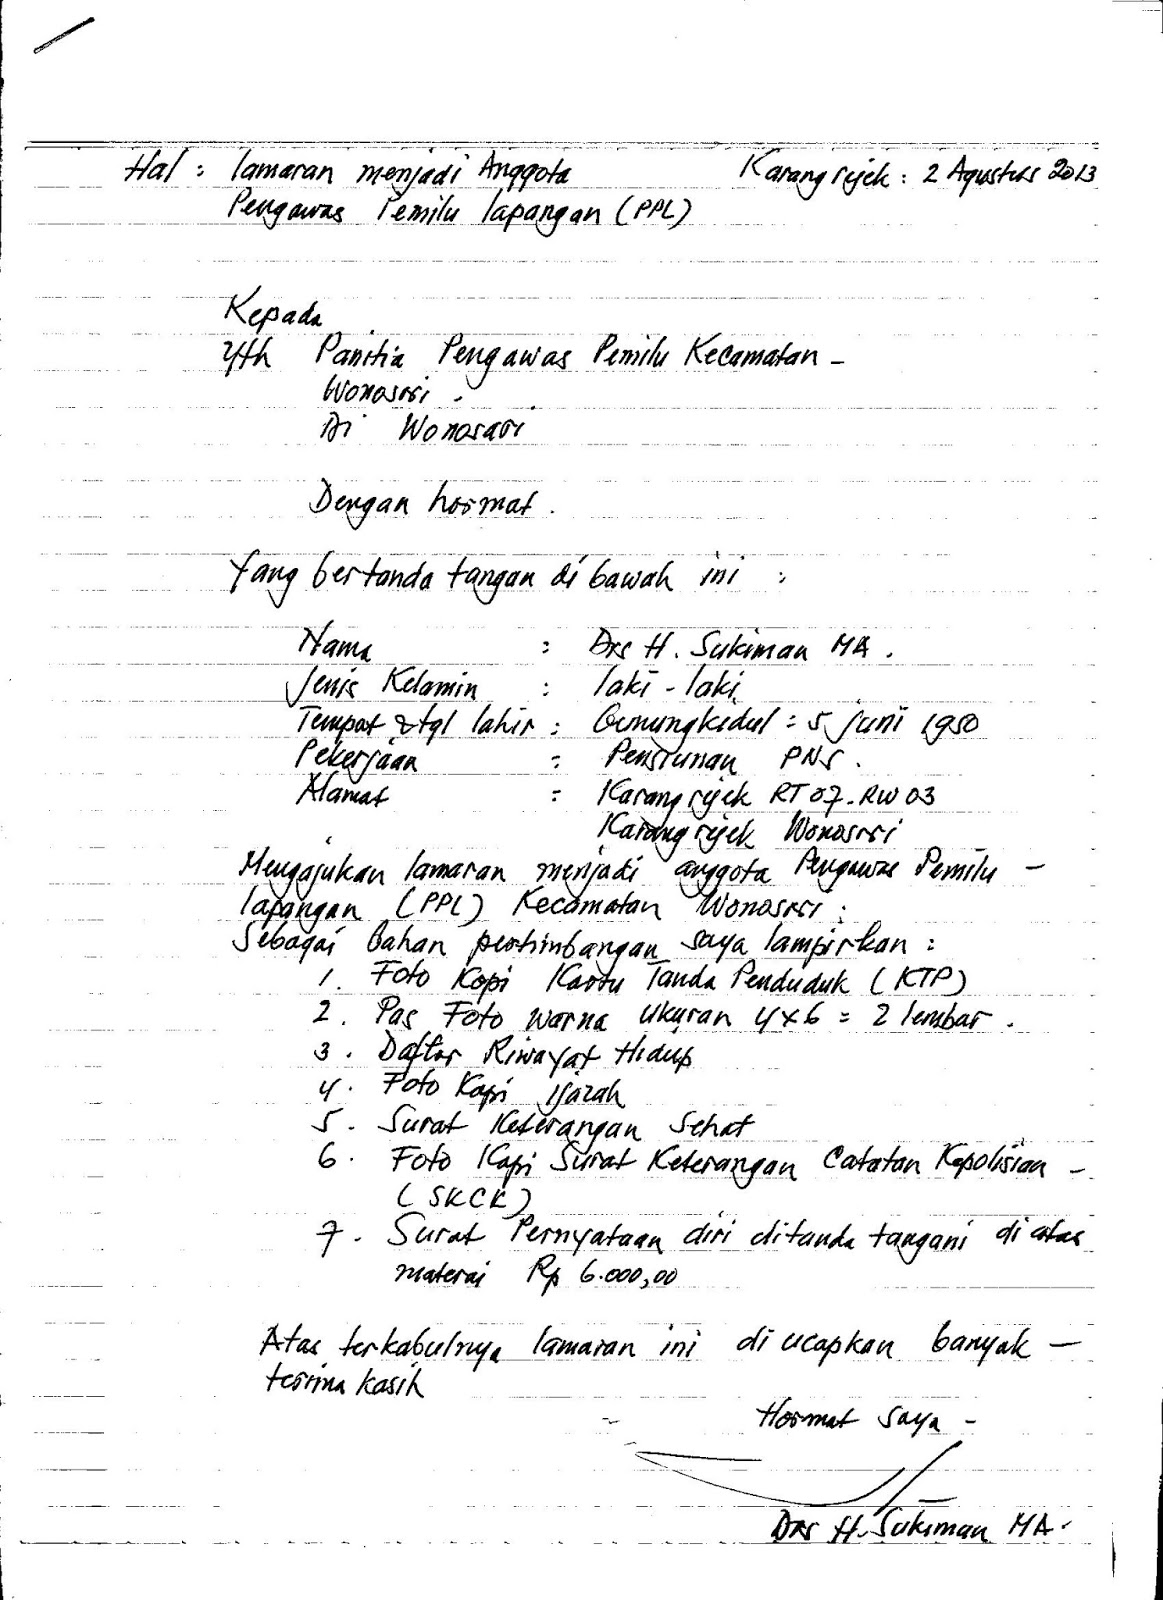 Hal : lamaran menjadi Anggota Karangrejek : 2 Agustus 2013
Pengawas Pemilu lapangan (PPL)
Kepada
Yth Panitia Pengawas Pemilu Kecamatan -
Wonosari .
Di Wonosari
Dengan hormat .
Yang bertanda tangan di bawah ini :
Nama : Drs H. Sukiman MA .
Jenis Kelamin : laki - laki
Tempat & tgl lahir : Gunungkidul = 5 juni 1950
Pekerjaan : Pensiunan PNS .
Alamat : Karangrejek RT 07 . RW 03
Karangrejek Wonosari
Mengajukan lamaran menjadi anggota Pengawas Pemilu -
lapangan (PPL) Kecamatan Wonosari :
Sebagai bahan pertimbangan saya lampirkan :
1. Foto Kopi Kartu Tanda Penduduk (KTP)
2. Pas Foto warna ukuran 4x6 = 2 lembar .
3. Daftar Riwayat Hidup
4. Foto Kopi ijazah
5. Surat Keterangan Sehat
6. Foto Kopi Surat Keterangan Catatan Kepolisian -
(SKCK)
7. Surat Pernyataan diri ditanda tangani di atas
materai Rp 6.000,00
Atas terkabulnya lamaran ini di ucapkan banyak -
terima kasih
Hormat saya -
Drs H. Sukiman MA .